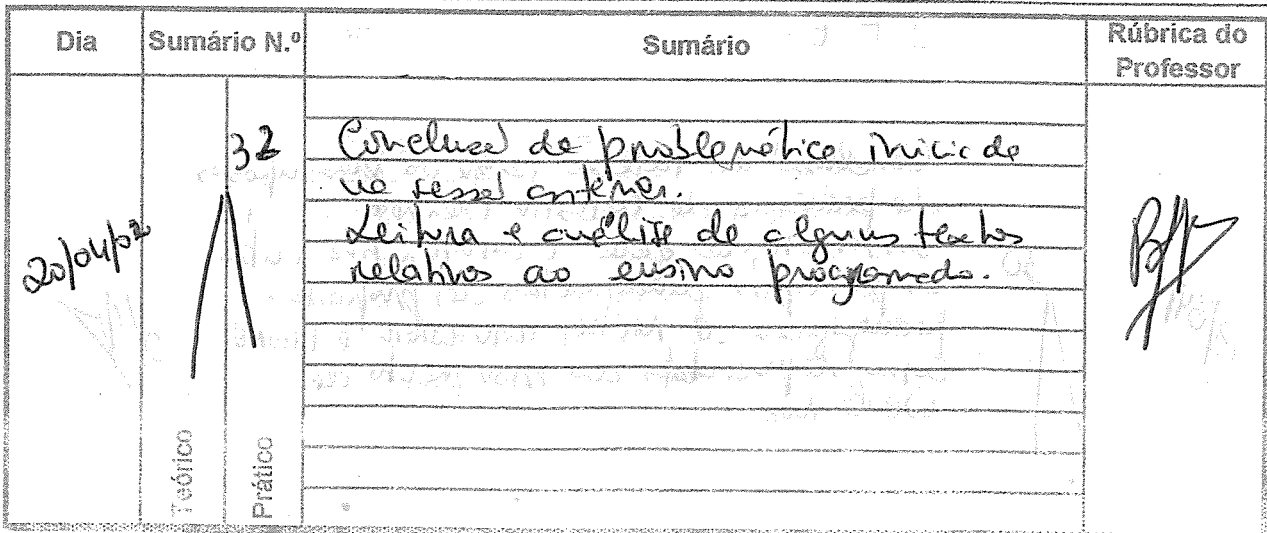 Dia Sumário N.º Sumário Rúbrica do Professor
20/04/02
32
Conclusão da problemática iniciada
na sessão anterior.
Leitura e análise de alguns textos
relativos ao ensino programado.
Teórico
Prático